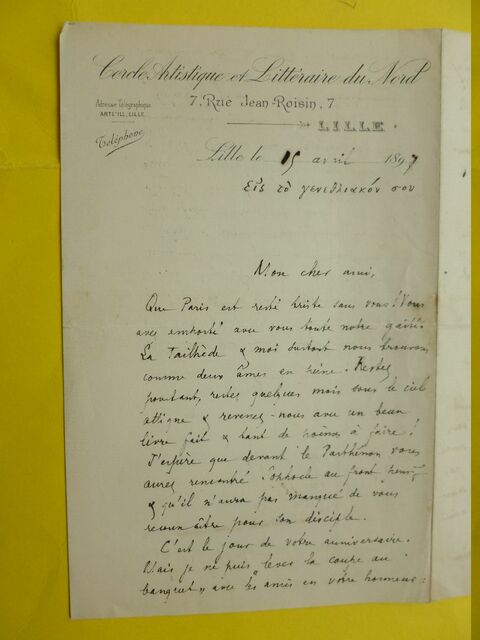 Cercle Artistique et Littéraire du Nord
7, Rue Jean-Roisin, 7
Adresse Télégraphique
ARTI.ILL. LILLE
LILLE
Téléphone
Lille le 15 avril 1897
Εἰς τὸ γενεθλιακόν σου
Mon cher ami,
Que Paris est resté triste sans vous ! Vous
avez emporté avec vous toute notre gaîté.
La Tailhède & moi surtout nous trouvons
comme deux âmes en peine. Restez
pourtant, restez quelques mois sous le ciel
attique & revenez-nous avec un beau
livre fait & tant de poèmes à faire !
J'espère que devant le Parthénon vous
aurez rencontré Sophocle au front
& qu'il n'aura pas manqué de vous
reconnaître pour son disciple.
C'est le jour de votre anniversaire.
Mais je ne puis "lever la coupe au
banquet" avec les amis en votre honneur :